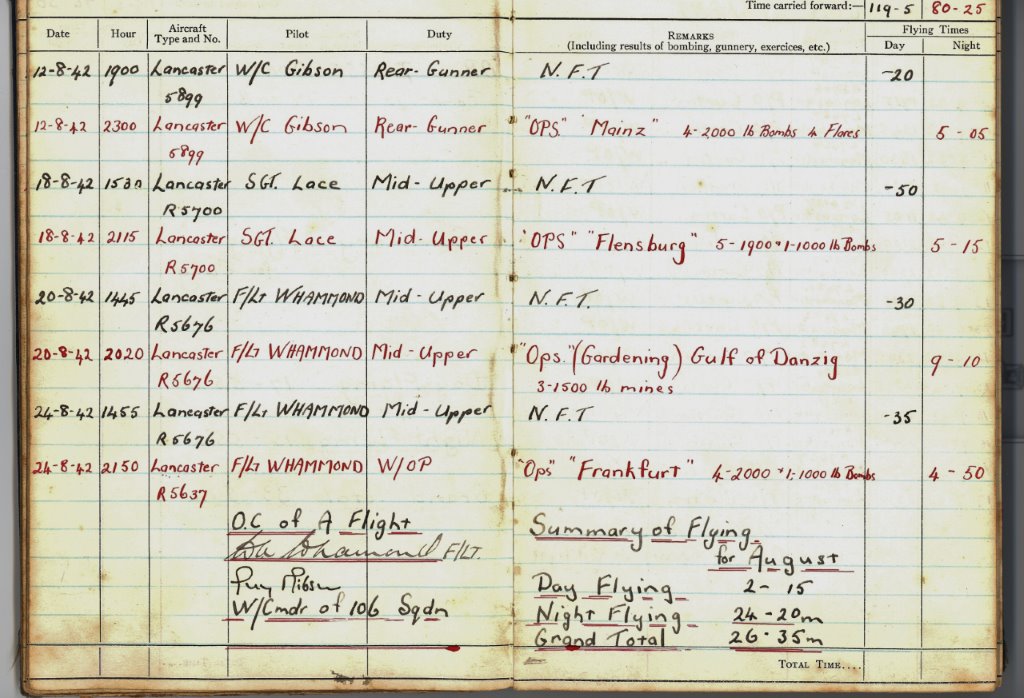 Time carried forward:— 119-5 80-25
Date Hour Aircraft Type and No. Pilot Duty REMARKS (Including results of bombing, gunnery, exercices, etc.) Flying Times Day Night
12-8-42 1900 Lancaster W/C Gibson Rear-Gunner N.F.T -20
5899
12-8-42 2300 Lancaster W/C Gibson Rear-Gunner "OPS" "Mainz" 4-2000 lb Bombs 4 Flares 5-05
5899
18-8-42 1530 Lancaster SGT. Lace Mid-Upper N.F.T -50
R5700
18-8-42 2115 Lancaster SGT. Lace Mid-Upper "OPS" "Flensburg" 5-1900+1-1000 lb Bombs 5-15
R5700
20-8-42 1445 Lancaster F/Lt WHAMMOND Mid-Upper N.F.T. -30
R5676
20-8-42 2020 Lancaster F/Lt WHAMMOND Mid-Upper "Ops." (Gardening) Gulf of Danzig 9-10
R5676 3-1500 lb mines
24-8-42 1455 Lancaster F/Lt WHAMMOND Mid-Upper N.F.T -35
R5676
24-8-42 2150 Lancaster F/Lt WHAMMOND W/OP "Ops" "Frankfurt" 4-2000+1-1000 lb Bombs 4-50
R5637
O.C of A Flight
F/LT.
Guy Gibson
W/Cmdr of 106 Sqdn
Summary of Flying
for August
Day Flying 2-15
Night Flying 24-20m
Grand Total 26.35m
TOTAL TIME....